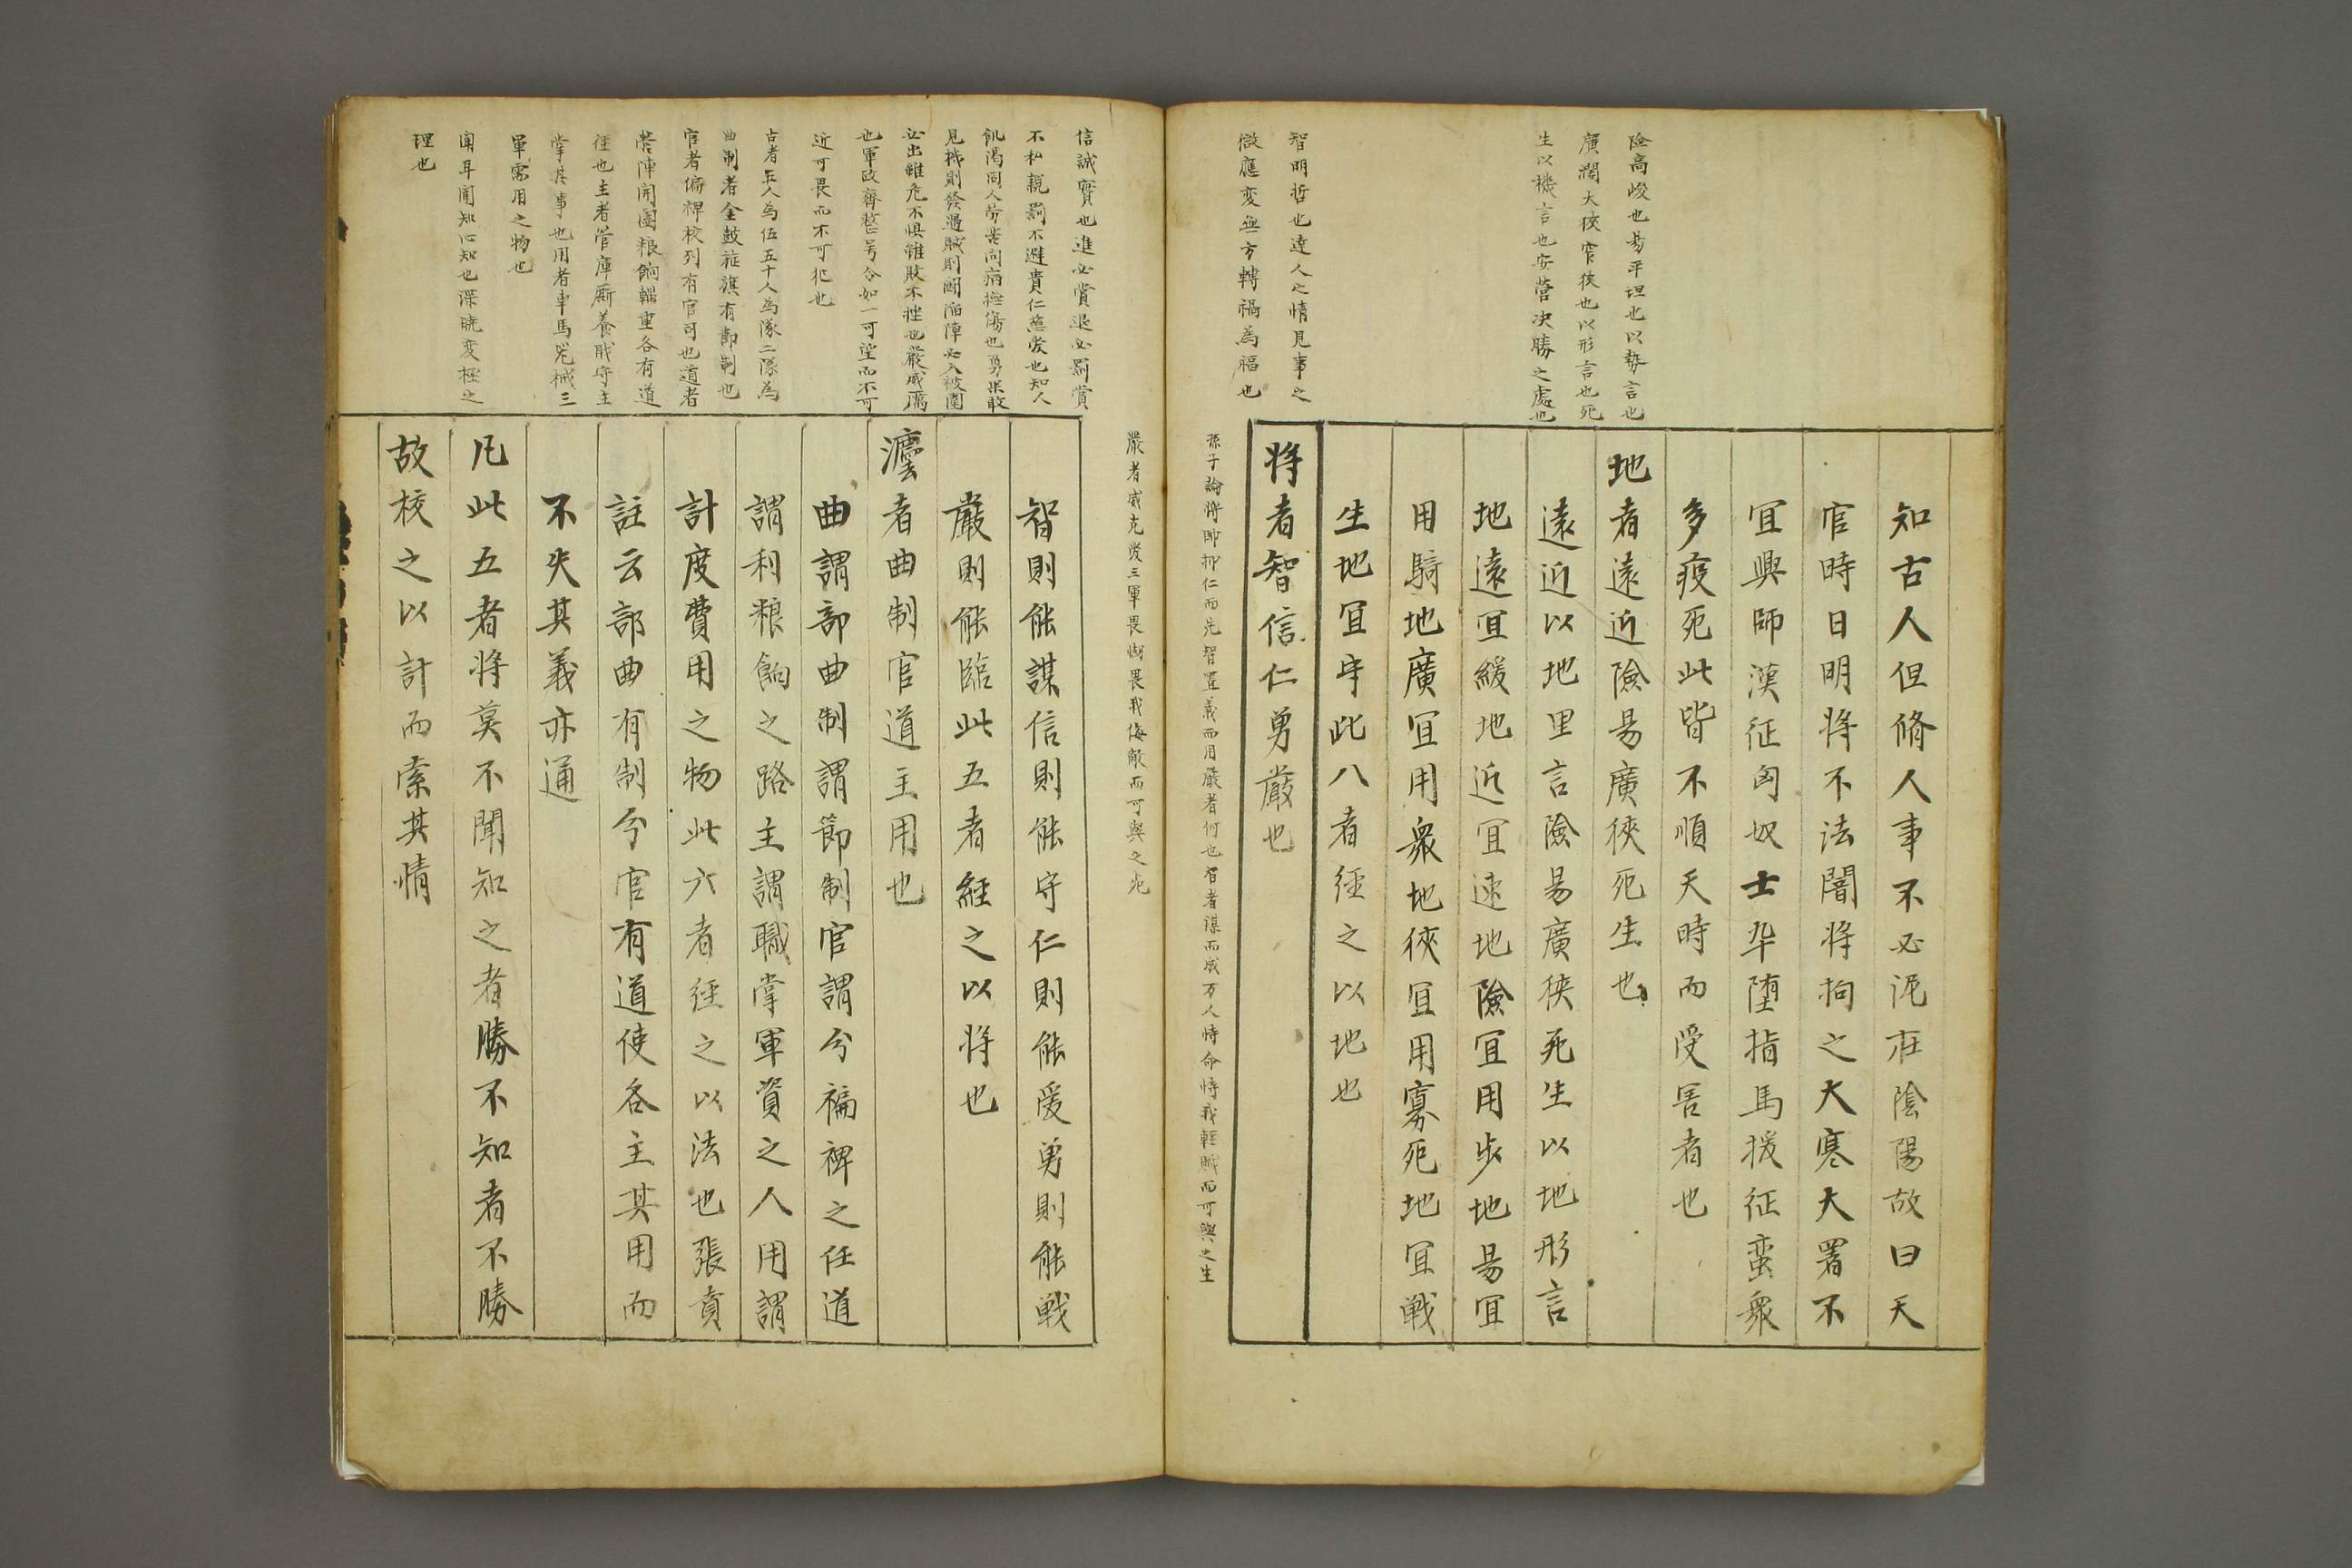 險高峻也易平坦也以勢言也
廣濶大狹窄狹也以形言也死
生以機言也安營决勝之處也
智明哲也達人之情見事之
微應変無方轉禍為福也
知古人但脩人事不必泥在陰陽故曰天
官時日明将不法闇将拘之大寒大署不
冝興師漢征匈奴士卒堕指馬援征蛮衆
多疫死此皆不順天時而受害者也
地者遠近險易廣狹死生也
遠近以地里言險易廣狹死生以地形言
地遠冝緩地近冝速地險冝用步地易冝
用騎地廣冝用衆地狹冝用寡死地冝戦
生地冝守此八者經之以地也
将者智信仁勇嚴也
孫子論將即抑仁而先智置義而用嚴者何也智者謀而成万人恃命恃我輕賊而可與之生
嚴者威克愛三軍畏㓜畏我侮敵而可與之死
信誠實也進必賞退必罰賞
不私親罰不避貴仁慈愛也知人
飢渴同人劳苦问病撫傷也勇果敢
見機則發遇賊則鬪陷陣必入被圍
必出雖危不惧雖敗不挫也嚴威厲
也軍政齊整号令如一可望而不可
近可畏而不可犯也
古者五人為伍五十人為隊二隊為
曲制者金鼓旌旗有節制也
官者偏裨校列有官司也道者
营陣開闔粮餉輜重各有道
徑也主者管庫厮養職守主
掌其事也用者車馬器械三
軍需用之物也
聞耳聞知心知也深曉変極之
理也
智則能謀信則能守仁則能愛勇則能戦
嚴則能臨此五者經之以将也
灋者曲制官道主用也
曲謂部曲制謂節制官謂分褊裨之任道
謂利粮餉之路主謂職掌軍資之人用謂
計度費用之物此六者經之以法也張賁
註云部曲有制分官有道使各主其用而
不失其義亦通
凡此五者将莫不聞知之者勝不知者不勝
故校之以計而索其情